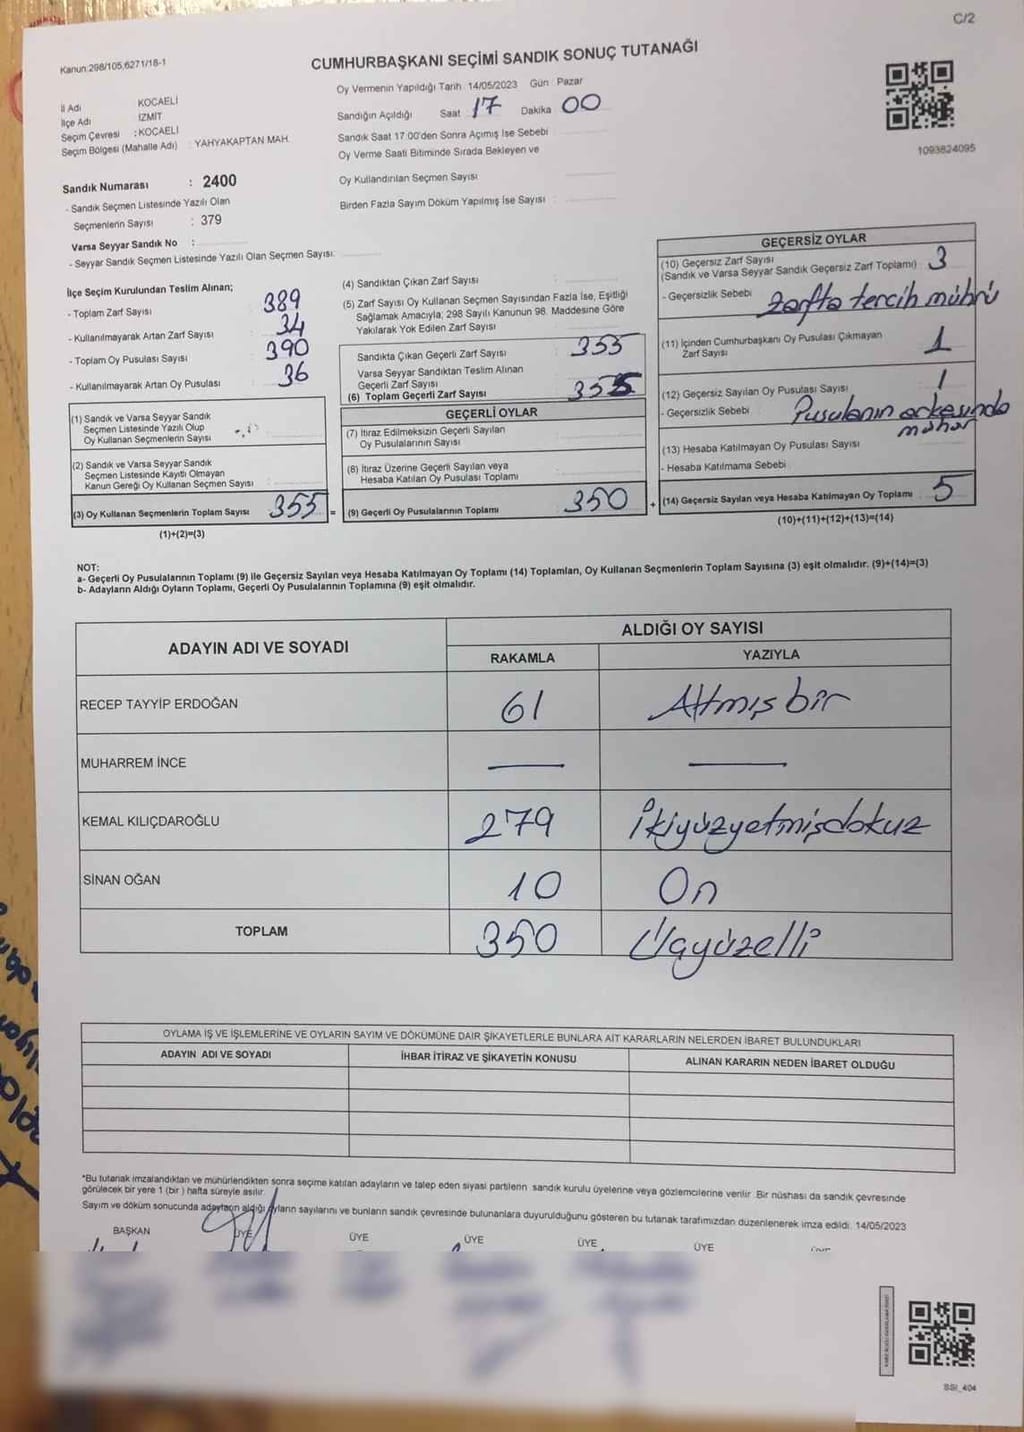 C/2
Kanun:298/105,6271/18-1
CUMHURBAŞKANI SEÇİMİ SANDIK SONUÇ TUTANAĞI
İl Adı KOCAELİ
İlçe Adı İZMİT
Seçim Çevresi : KOCAELİ
Seçim Bölgesi (Mahalle Adı) : YAHYAKAPTAN MAH.
Oy Vermenin Yapıldığı Tarih : 14/05/2023 Gün : Pazar
Sandığın Açıldığı Saat 17 Dakika 00
Sandık Saat 17.00'den Sonra Açımış İse Sebebi
Oy Verme Saati Bitiminde Sırada Bekleyen ve
Oy Kullandırılan Seçmen Sayısı
Birden Fazla Sayım Döküm Yapılmış İse Sayısı :
1093824095
Sandık Numarası : 2400
- Sandık Seçmen Listesinde Yazılı Olan
Seçmenlerin Sayısı : 379
Varsa Seyyar Sandık No :
- Seyyar Sandık Seçmen Listesinde Yazılı Olan Seçmen Sayısı:
İlçe Seçim Kurulundan Teslim Alınan;
- Toplam Zarf Sayısı 389
- Kullanılmayarak Artan Zarf Sayısı 34
- Toplam Oy Pusulası Sayısı 390
- Kullanılmayarak Artan Oy Pusulası 36
(1) Sandık ve Varsa Seyyar Sandık
Seçmen Listesinde Yazılı Olup
Oy Kullanan Seçmenlerin Sayısı
(2) Sandık ve Varsa Seyyar Sandık
Seçmen Listesinde Kayıtlı Olmayan
Kanun Gereği Oy Kullanan Seçmen Sayısı :
(3) Oy Kullanan Seçmenlerin Toplam Sayısı 355 =
(1)+(2)=(3)
(4) Sandıktan Çıkan Zarf Sayısı
(5) Zarf Sayısı Oy Kullanan Seçmen Sayısından Fazla İse, Eşitliği
Sağlamak Amacıyla; 298 Sayılı Kanunun 98. Maddesine Göre
Yakılarak Yok Edilen Zarf Sayısı
Sandıkta Çıkan Geçerli Zarf Sayısı 355
Varsa Seyyar Sandıktan Teslim Alınan
Geçerli Zarf Sayısı
(6) Toplam Geçerli Zarf Sayısı 355
GEÇERLİ OYLAR
(7) İtiraz Edilmeksizin Geçerli Sayılan
Oy Pusulalarının Sayısı
(8) İtiraz Üzerine Geçerli Sayılan veya
Hesaba Katılan Oy Pusulası Toplamı
(9) Geçerli Oy Pusulalarının Toplamı 350 +
GEÇERSİZ OYLAR
(10) Geçersiz Zarf Sayısı
(Sandık ve Varsa Seyyar Sandık Geçersiz Zarf Toplamı) 3
- Geçersizlik Sebebi zarfta tercih mührü
(11) İçinden Cumhurbaşkanı Oy Pusulası Çıkmayan
Zarf Sayısı 1
(12) Geçersiz Sayılan Oy Pusulası Sayısı 1
- Geçersizlik Sebebi Pusulanın arkasında
mühür
(13) Hesaba Katılmayan Oy Pusulası Sayısı
- Hesaba Katılmama Sebebi
(14) Geçersiz Sayılan veya Hesaba Katılmayan Oy Toplamı 5
(10)+(11)+(12)+(13)=(14)
NOT:
a- Geçerli Oy Pusulalarının Toplamı (9) ile Geçersiz Sayılan veya Hesaba Katılmayan Oy Toplamı (14) Toplamları, Oy Kullanan Seçmenlerin Toplam Sayısına (3) eşit olmalıdır. (9)+(14)=(3)
b- Adayların Aldığı Oyların Toplamı, Geçerli Oy Pusulalarının Toplamına (9) eşit olmalıdır.
ADAYIN ADI VE SOYADI ALDIĞI OY SAYISI
RAKAMLA YAZIYLA
RECEP TAYYİP ERDOĞAN 61 Altmış bir
MUHARREM İNCE — —
KEMAL KILIÇDAROĞLU 279 İkiyüzyetmişdokuz
SİNAN OĞAN 10 On
TOPLAM 350 Üçyüzelli
OYLAMA İŞ VE İŞLEMLERİNE VE OYLARIN SAYIM VE DÖKÜMÜNE DAİR ŞİKAYETLERLE BUNLARA AİT KARARLARIN NELERDEN İBARET BULUNDUKLARI
ADAYIN ADI VE SOYADI İHBAR İTİRAZ VE ŞİKAYETİN KONUSU ALINAN KARARIN NEDEN İBARET OLDUĞU
*Bu tutanak imzalandıktan ve mühürlendikten sonra seçime katılan adayların ve talep eden siyasi partilerin sandık kurulu üyelerine veya gözlemcilerine verilir. Bir nüshası da sandık çevresinde
görülecek bir yere 1 (bir ) hafta süreyle asılır.
Sayım ve döküm sonucunda adayların aldığı oyların sayılarını ve bunların sandık çevresinde bulunanlara duyurulduğunu gösteren bu tutanak tarafımızdan düzenlenerek imza edildi. 14/05/2023
BAŞKAN ÜYE ÜYE ÜYE ÜYE ÜYE
SSI_404